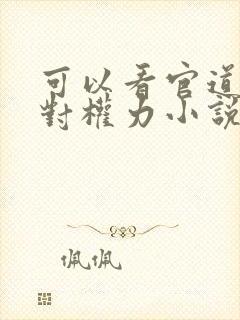 可以看官道
對權力小說
佩佩